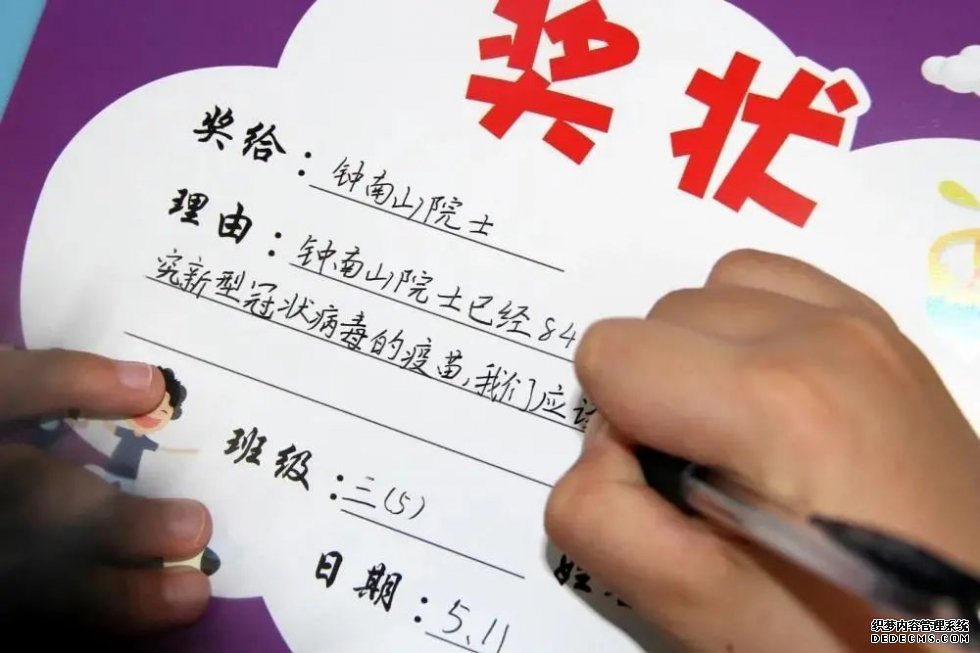 奖状
奖给：钟南山院士
理由：钟南山院士已经84
究新型冠状病毒的疫苗，我们应该
班级：三(5)
日期：5.11
织梦内容管理系统
DEDECMS.COM